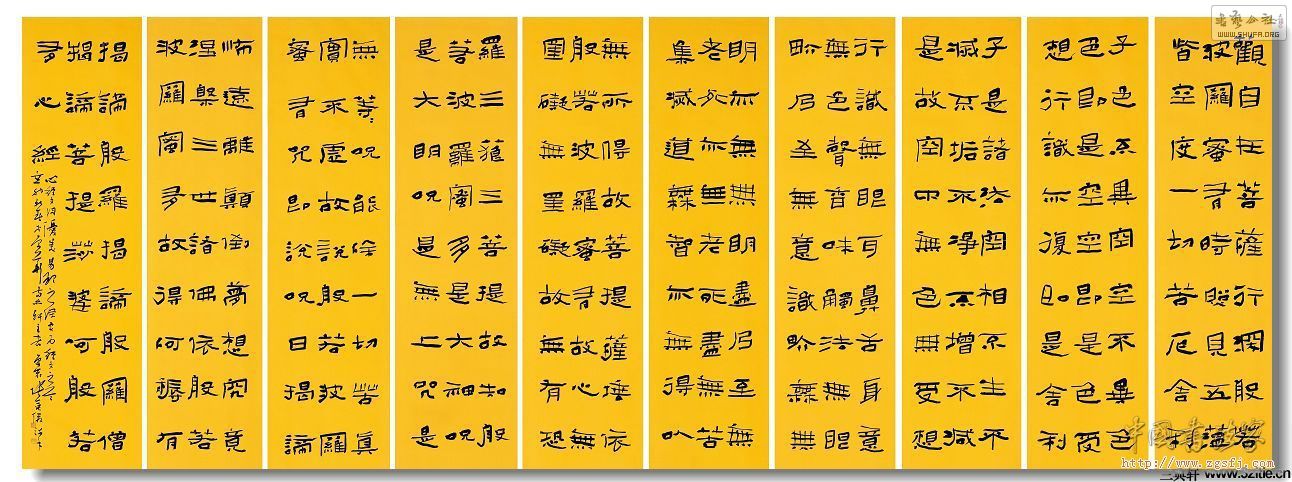 觀自在菩薩行深般若
波羅蜜多時照見五蘊
皆空度一切苦厄舍利
子色不異空空不異色
色即是空空即是色受
想行識亦復如是舍利
子是諸法空相不生不
滅不垢不淨不增不減
是故空中無色無受想
行識無眼耳鼻舌身意
無色聲香味觸法無眼
界乃至無意識界無無
明亦無無明盡乃至無
老死亦無老死盡無苦
集滅道無智亦無得以
無所得故菩提薩埵依
般若波羅蜜多故心無
罣礙無罣礙故無有恐
羅三藐三菩提故知般
若波羅蜜多是大神咒
是大明咒是無上咒是
無等々咒能除一切苦真
實不虛故說般若波羅
蜜多咒即說咒曰揭諦
怖遠離顛倒夢想究竟
涅槃三世諸佛依般若
波羅蜜多故得阿耨有
揭諦般羅揭諦般羅僧
揭諦菩提莎婆呵般若
多心經
WWW.SHUFA.ORG
中國書法家
http://www.zgsfj.com
三典轩 www.32ltie.cn